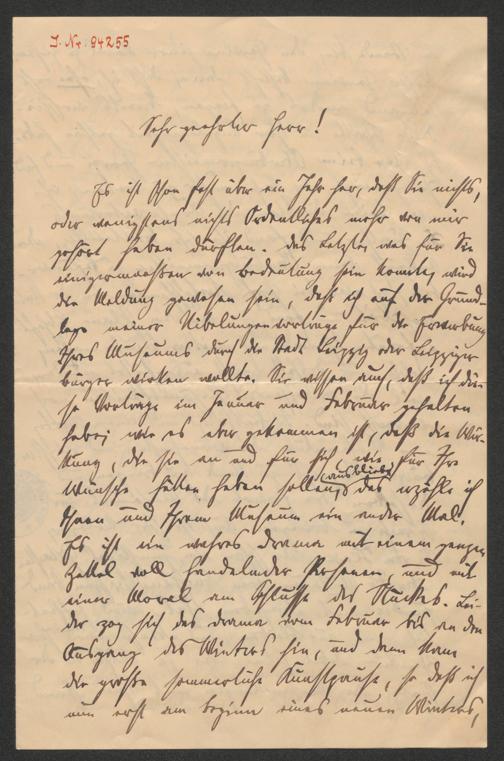 J. Nr. 94255
Sehr geehrter Herr!
Es ist schon fast über ein Jahr her, daß Sie nichts,
oder wenigstens nichts Ordentliches mehr von mir
gehört haben dürften. Das Letzte, was für Sie
einigermaassen von Bedeutung sein konnte, wird
die Meldung gewesen sein, daß ich auf der Grund-
lage meiner Nibelungenvorträge für die Erwerbung
Ihres Museums durch die Stadt Leipzig oder Leipziger
Bürger wirken wollte. Sie wissen auch, daß ich die-
se Vorträge im Januar und Februar gehalten
habe; wie es aber gekommen ist, daß die Wir-
kung, die sie an und für sich, wie für Ihre
Wünsche hätten haben sollen, ausblieb, das erzähle ich
Ihnen und Ihrem Museum ein ander Mal.
Es ist ein wahres Drama mit einem ganzen
Zettel voll handelnder Personen, und mit
einer Moral am Schlusse des Stückes. Lei-
der zog sich das Drama vom Februar bis an den
Ausgang des Winters hin, und dann kam
die große sommerliche Kunstpause, so daß ich
nun erst am Beginn eines neuen Winters,